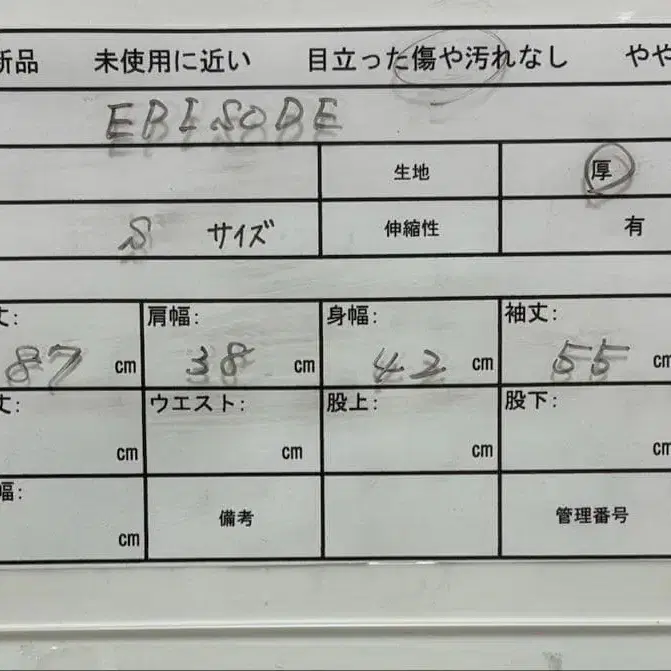 新品 未使用に近い 目立った傷や汚れなし やや
EPISODE
生地 厚
S サイズ 伸縮性 有
丈: 肩幅: 身幅: 袖丈:
87 cm 38 cm 42 cm 55 cm
丈: ウエスト: 股上: 股下:
cm cm cm cm
幅: 備考 管理番号
cm